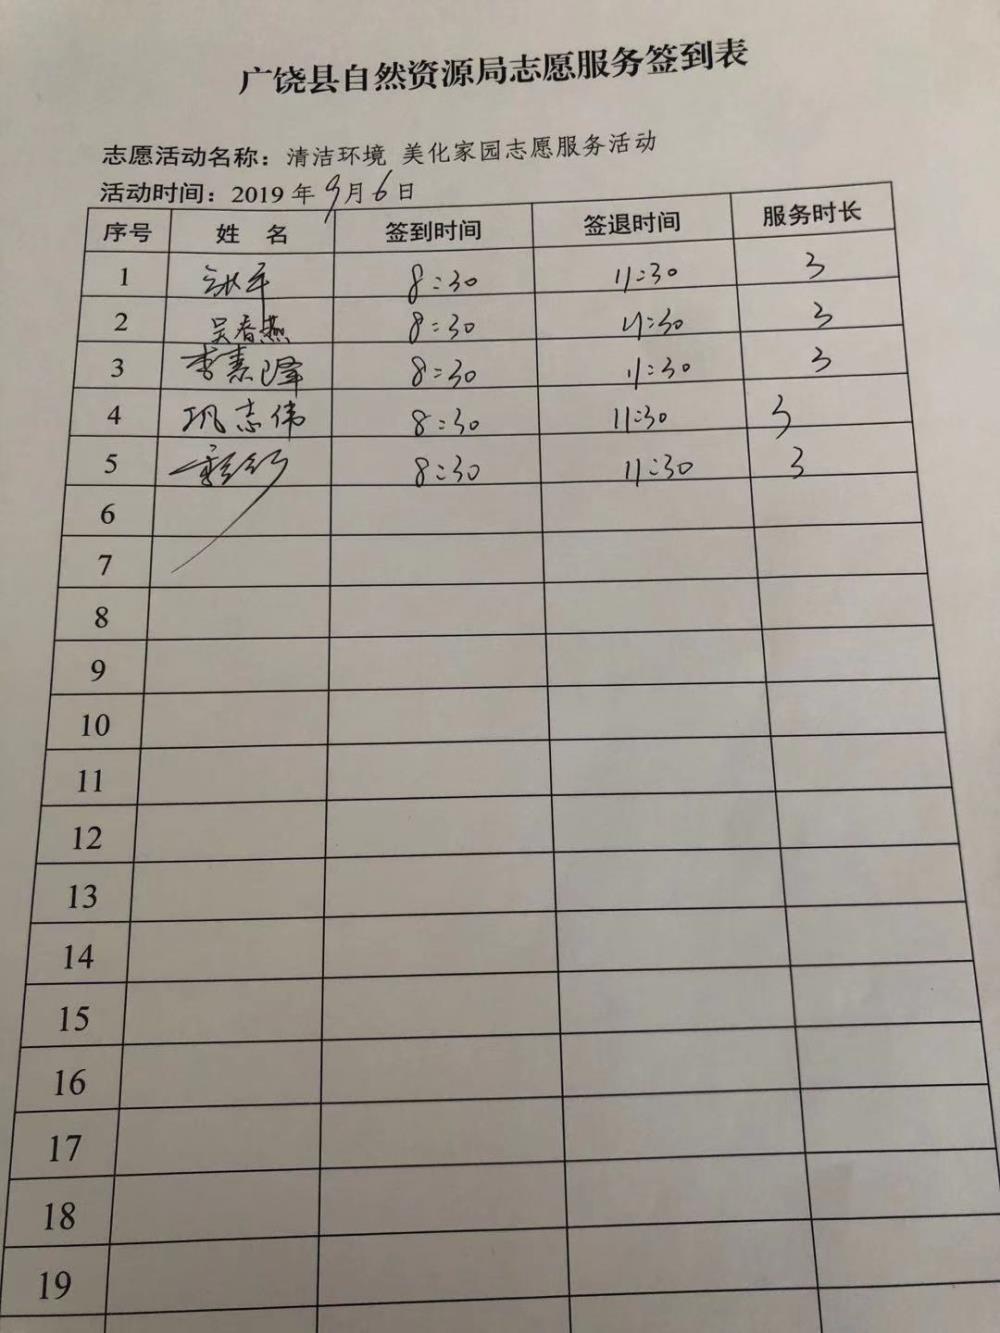 广饶县自然资源局志愿服务签到表
志愿活动名称：清洁环境 美化家园志愿服务活动
活动时间：2019 年 9 月 6 日
序号 姓 名 签到时间 签退时间 服务时长
1 8:30 11:30 3
2 吴春燕 8:30 11:30 3
3 李素 8:30 11:30 3
4 巩志伟 8:30 11:30 3
5 8:30 11:30 3
6
7
8
9
10
11
12
13
14
15
16
17
18
19